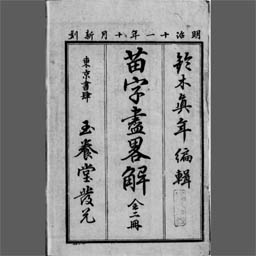 明治十一年十月新刻
鈴木真年編輯
苗字盡畧解 全二冊
東京書肆 玉養堂發兌